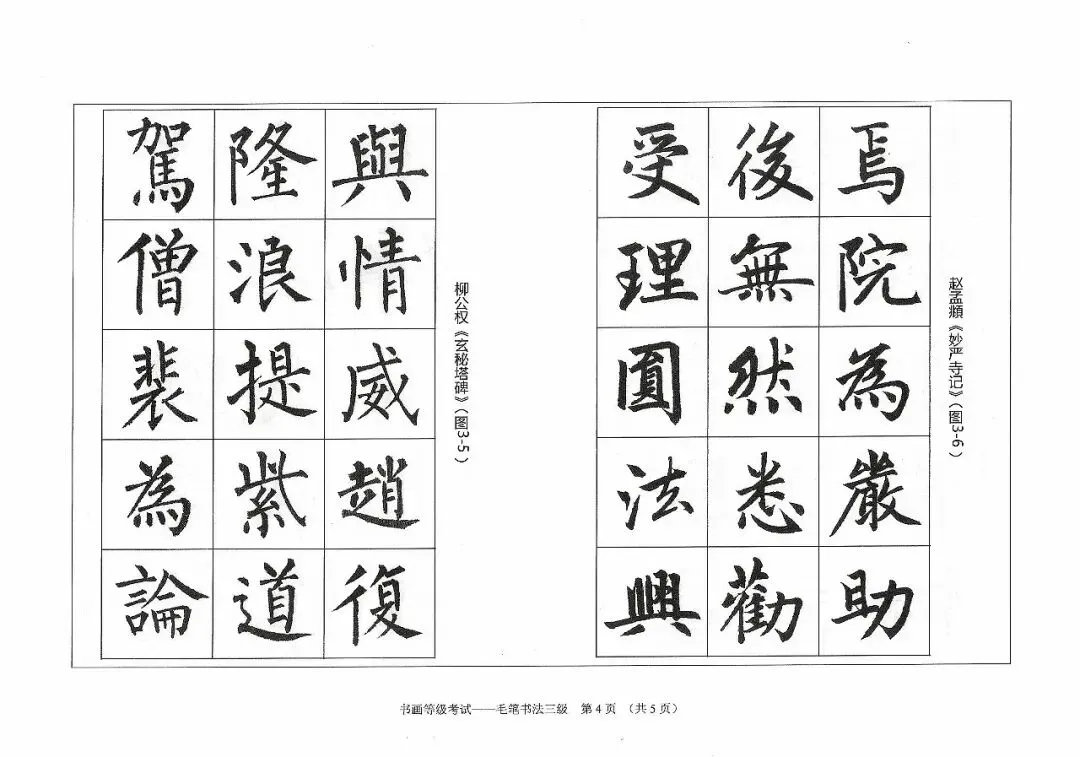 赵孟頫《妙严寺记》（图3-6）
焉院為嚴助
後無然悉勸
受理圓法興
柳公权《玄秘塔碑》（图3-5）
與情威趙復
隆浪提紫道
駕僧裴為論
书画等级考试——毛笔书法三级 第4页 （共5页）